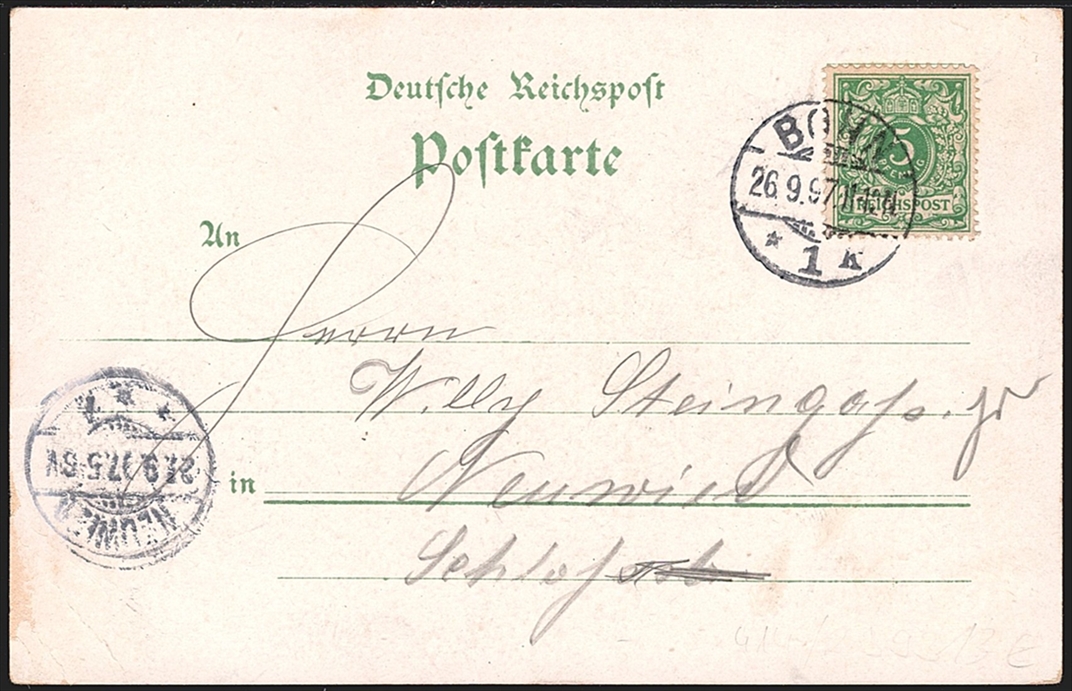 Deutsche Reichspost
Postkarte
5
PFENNIG
REICHSPOST
BONN
26.9.97. 11-12N
* 1 K
An
Herrn
Willy Steingass. jr
in Neuwied
Schlossstr.
NEUWIED
27.9.97. 5-6V
* * 1
13 E